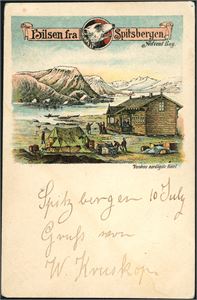 Hilsen fra Spitsbergen.
Advent Bay.
Verdens nordligste Hotel
Spitzbergen 10 July
Gruss von
W. Kruskop